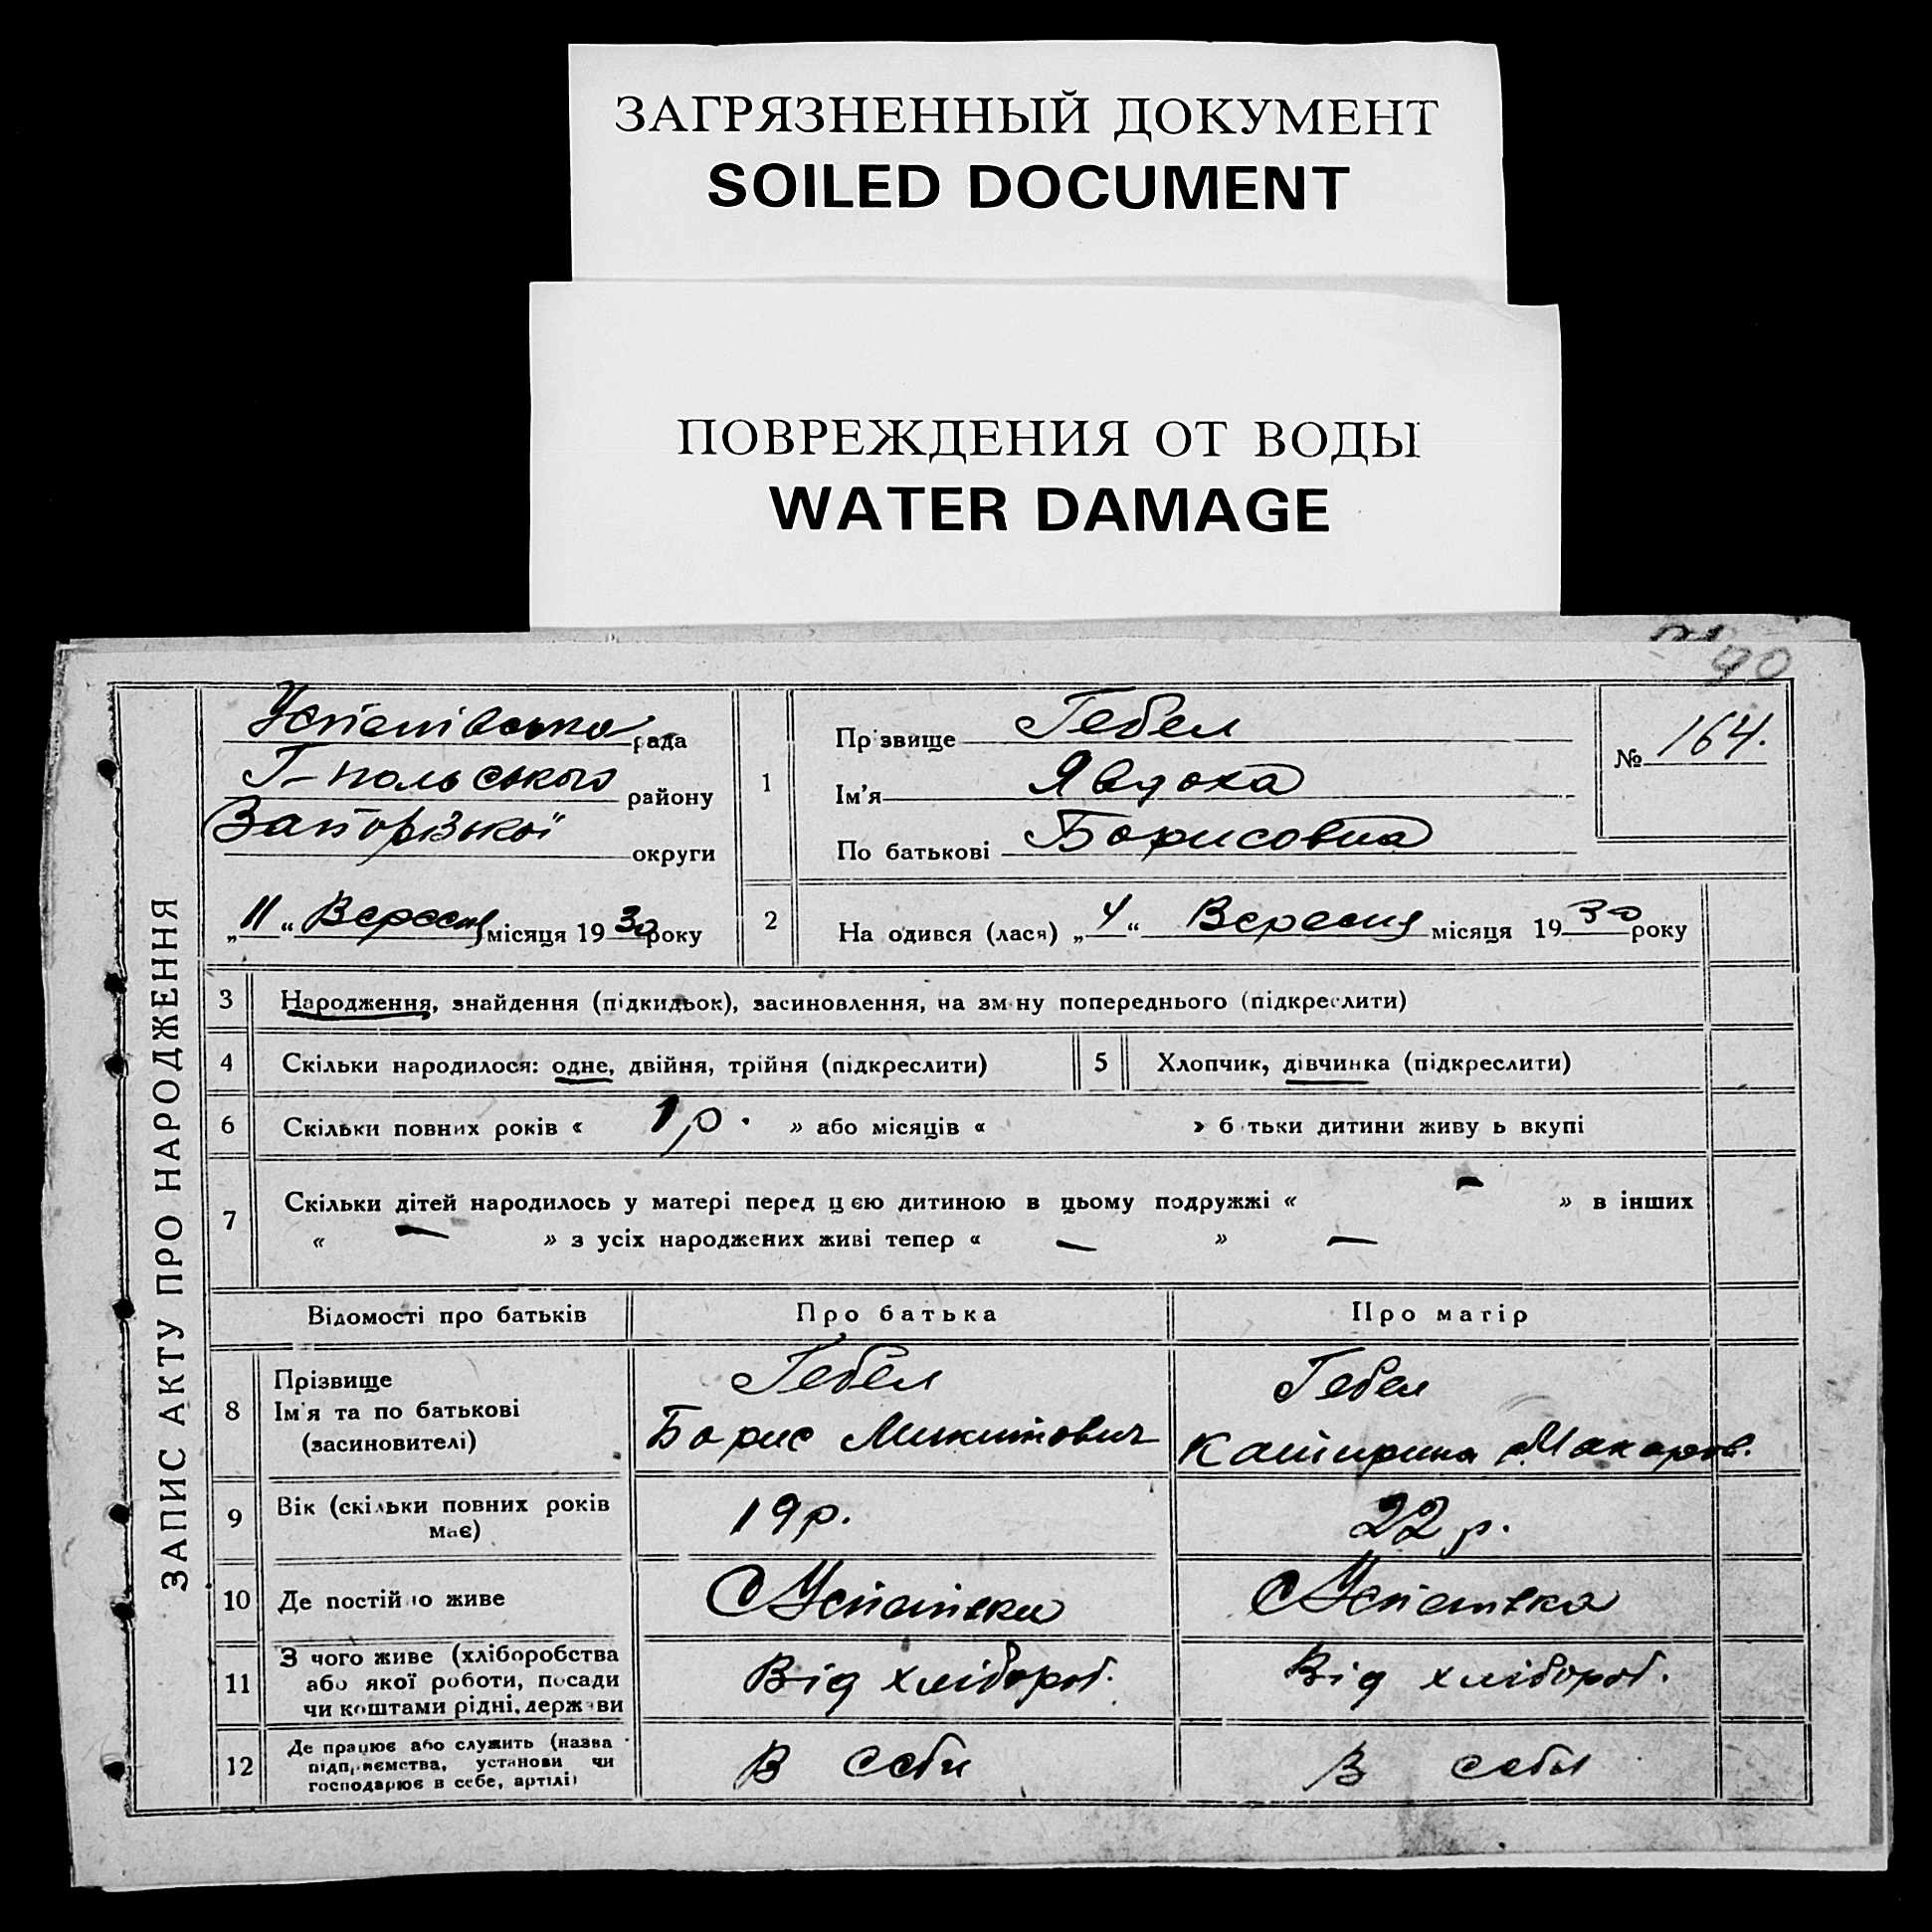 ЗАГРЯЗНЕННЫЙ ДОКУМЕНТ
SOILED DOCUMENT
ПОВРЕЖДЕНИЯ ОТ ВОДЫ
WATER DAMAGE
90
ЗАПИС АКТУ ПРО НАРОДЖЕННЯ
Успенівська рада
Г-польського району
Запорізької округи
„11“ Вересня місяця 1930 року
1
Прізвище Гебел
Ім'я Явдоха
По батькові Борисовна
№ 164.
2 На одився (лася) „4“ Вересня місяця 1930 року
3 Народження, знайдення (підкидьок), засиновлення, на зм ну попереднього (підкреслити)
4 Скільки народилося: одне, двійня, трійня (підкреслити) 5 Хлопчик, дівчинка (підкреслити)
6 Скільки повних років « 1 р. » або місяців « » б тьки дитини живу ь вкупі
7 Скільки дітей народилось у матері перед цією дитиною в цьому подружжі « – » в інших
« – » з усіх народжених живі тепер « – » –
Відомості про батьків Про батька Про матір
8 Прізвище
Ім'я та по батькові
(засиновителі)
Гебел
Борис Микитович
Гебел
Катирина Макаров.
9 Вік (скільки повних років
має)
19 р. 22 р.
10 Де постій о живе С Успенівка С Успенівка
11 З чого живе (хліборобства
або якої роботи, посади
чи коштами рідні, держави
Від хлібороб. Від хлібороб.
12 Де працює або служить (назва
підприємства, установи чи
господарює в себе, артілі)
В себи В себи